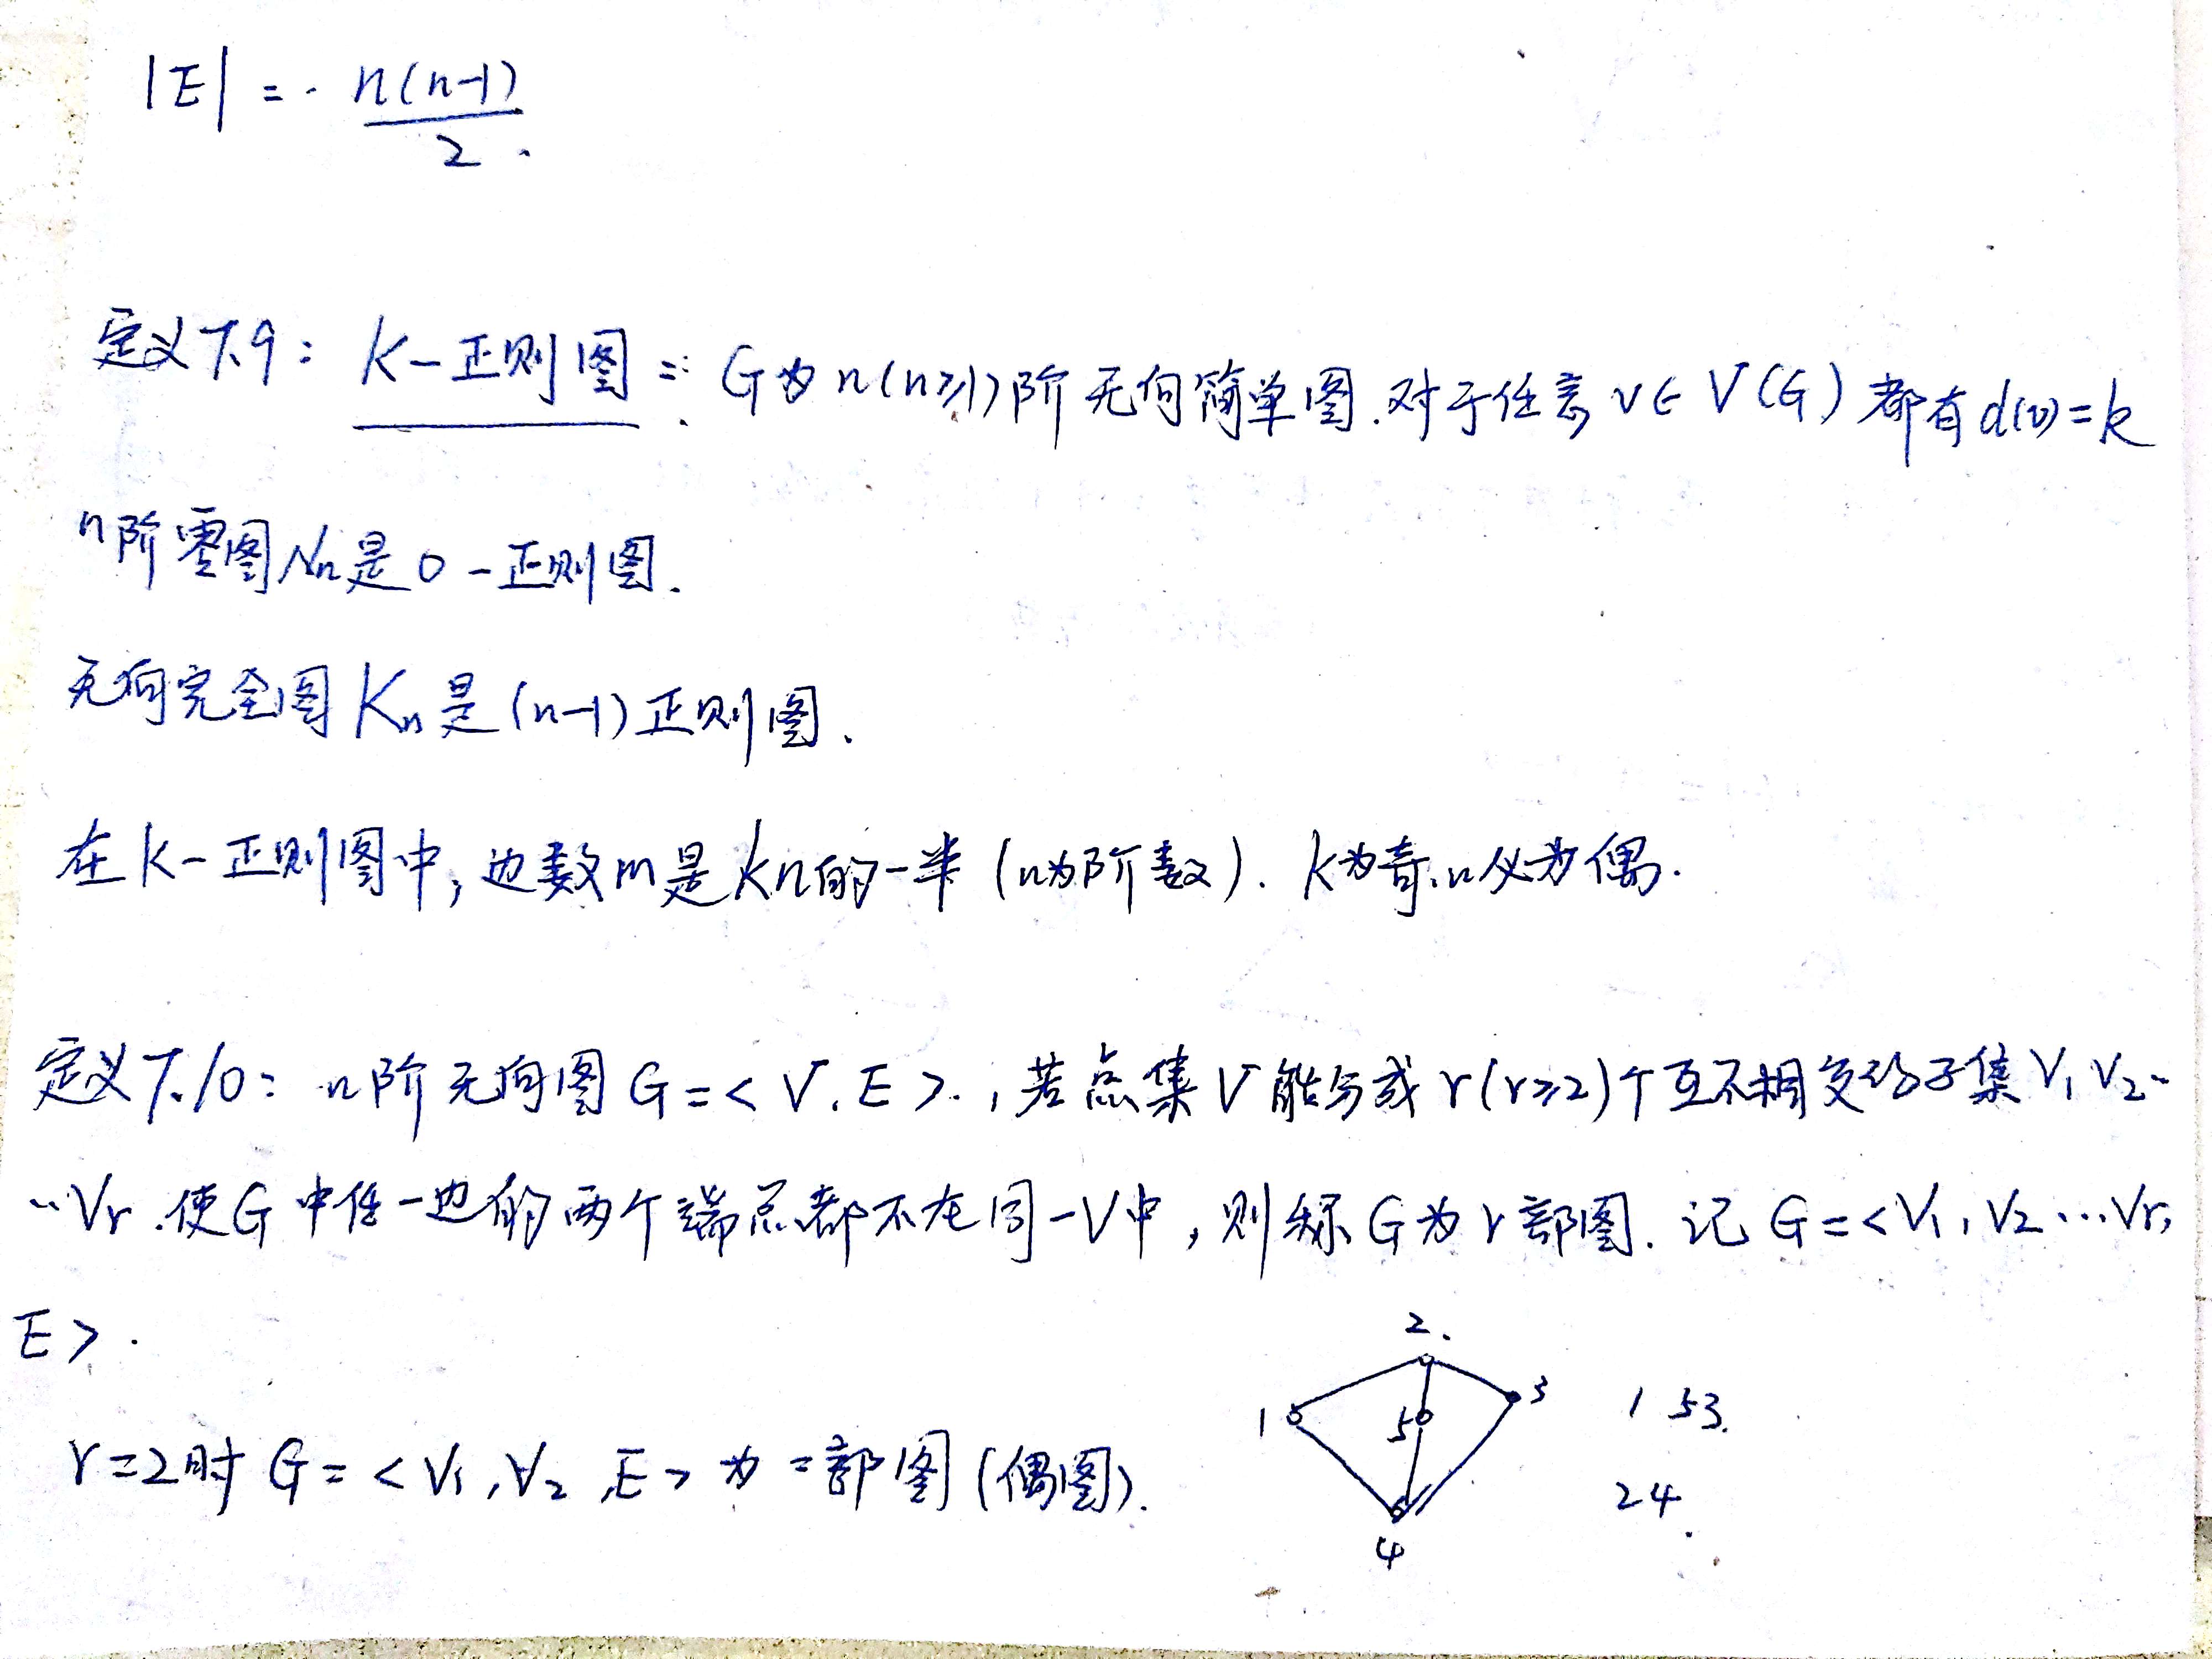 |E| = n(n-1)/2.
定义7.9: K-正则图: G为n(n≥1)阶无向简单图.对于任意v∈V(G)都有d(v)=k
n阶零图Nn是0-正则图.
无向完全图Kn是(n-1)正则图.
在K-正则图中,边数m是Kn的一半(n为阶数).K为奇,n必为偶.
定义7.10: n阶无向图G=<V.E>.,若点集V能分成r(r≥2)个互不相交的子集V1 V2..
..Vr.使G中任一边的两个端点都不在同一V中,则称G为r部图.记G=<V1,V2...Vr,
E>.
r=2时G=<V1,V2,E>为二部图(偶图).
2.
1
5
3
4
1 53.
24.